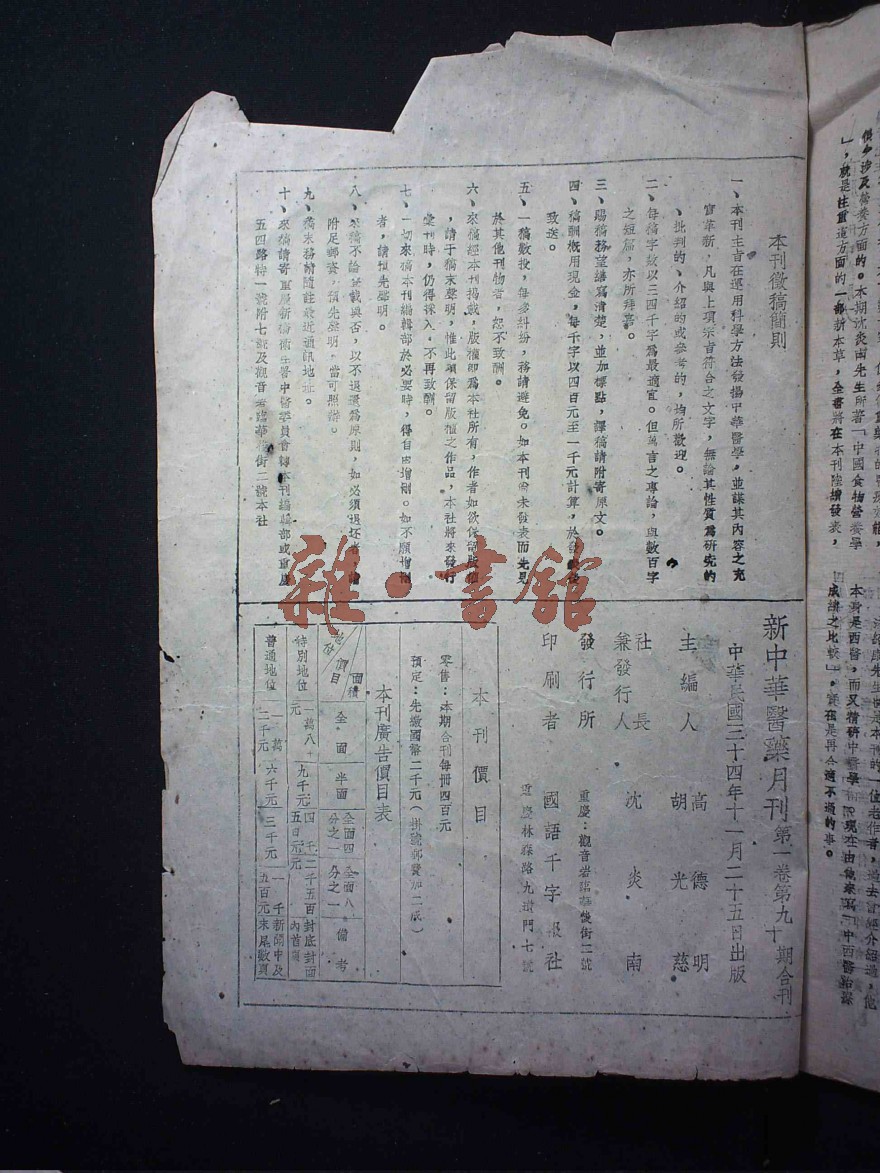 本刊徵稿簡則
一、本刊主旨在運用科學方法發揚中華醫學，並謀其內容之充
實革新，凡與上項宗旨符合之文字，無論其性質爲研究的
、批判的、介紹的或參考的，均所歡迎。
二、每稿字數以三四千字爲最適宜。但萬言之專論，與數百字
之短篇，亦所拜嘉。
三、賜稿務望繕寫清楚，並加標點，譯稿請附寄原文。
四、稿酬概用現金，每千字以四百元至一千元計算，於發
致送。
五、一稿數投，每多糾紛，務請避免。如本刊尙未發表而先見
於其他刊物者，恕不致酬。
六、來稿經本刊揭載，版權卽爲本社所有，作者如欲保留版權
，請于稿末聲明，惟此項保留版權之作品，本社將來發行
彙刊時，仍得採入，不再致酬。
七、一切來稿本刊編輯部於必要時，得自由增刪。如不願增刪
者，請預先聲明。
八、來稿不論登載與否，以不退還爲原則，如必須退还者
附足郵費，預先聲明，當可照辦。
九、稿末務請隨註最近通訊地址。
十、來稿請寄重慶新橋衛生署中醫委員會轉本刊編輯部或重慶
五四路特一號附七號及觀音岩臨華後街二號本社
新中華醫藥月刊 第一卷第九十期合刊
中華民國三十四年十一月二十五日出版
主編人 高德明
胡光慈
社長
兼發行人 沈炎南
發行所 重慶：觀音岩臨華後街二號
印刷者 國語千字報社
重慶林森路九道門七號
本刊價目
零售：本期合刊每冊四百元
預定：先繳國幣二千元（掛號郵費加二成）
本刊廣告價目表
面積 價目 地位 全面 半面 全面四分之一 全面八分之一 備考
特別地位 一萬八千元 九千元 四千五百元 二千五百元 封底封面內首頁
普通地位 一萬二千元 六千元 三千元 一千五百元 新聞中及末尾數頁
雜·書館
價今涉及營養方面的。本期沈炎南先生所著「中國食物營養學
」，就是注重這方面的一部新本草，全書將在本刊陸續發表，
本身是西醫，而又精研中醫學